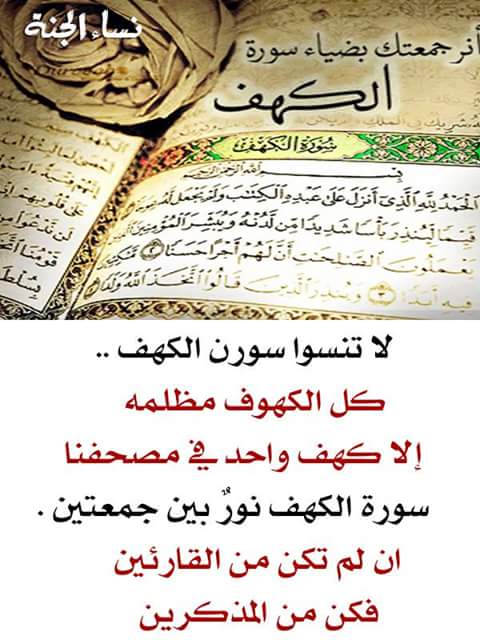 نساء الجنة
أنر جمعتك بضياء سورة
الكهف
سورة الكهف
بسم الله الرحمن الرحيم
الحمد لله الذي أنزل على عبده الكتاب ولم يجعل له
قيما لينذر بأسا شديدا من لدنه ويبشر المؤمنين
يعملون الصالحات أن لهم أجرا حسنا ٢ مكثين
فيه أبدا ٣ وينذر الذين قالوا اتخذ الله ولدا
لا تنسوا سورن الكهف ..
كل الكهوف مظلمه
إلا كهف واحد في مصحفنا
سورة الكهف نورٌ بين جمعتين .
ان لم تكن من القارئين
فكن من المذكرين